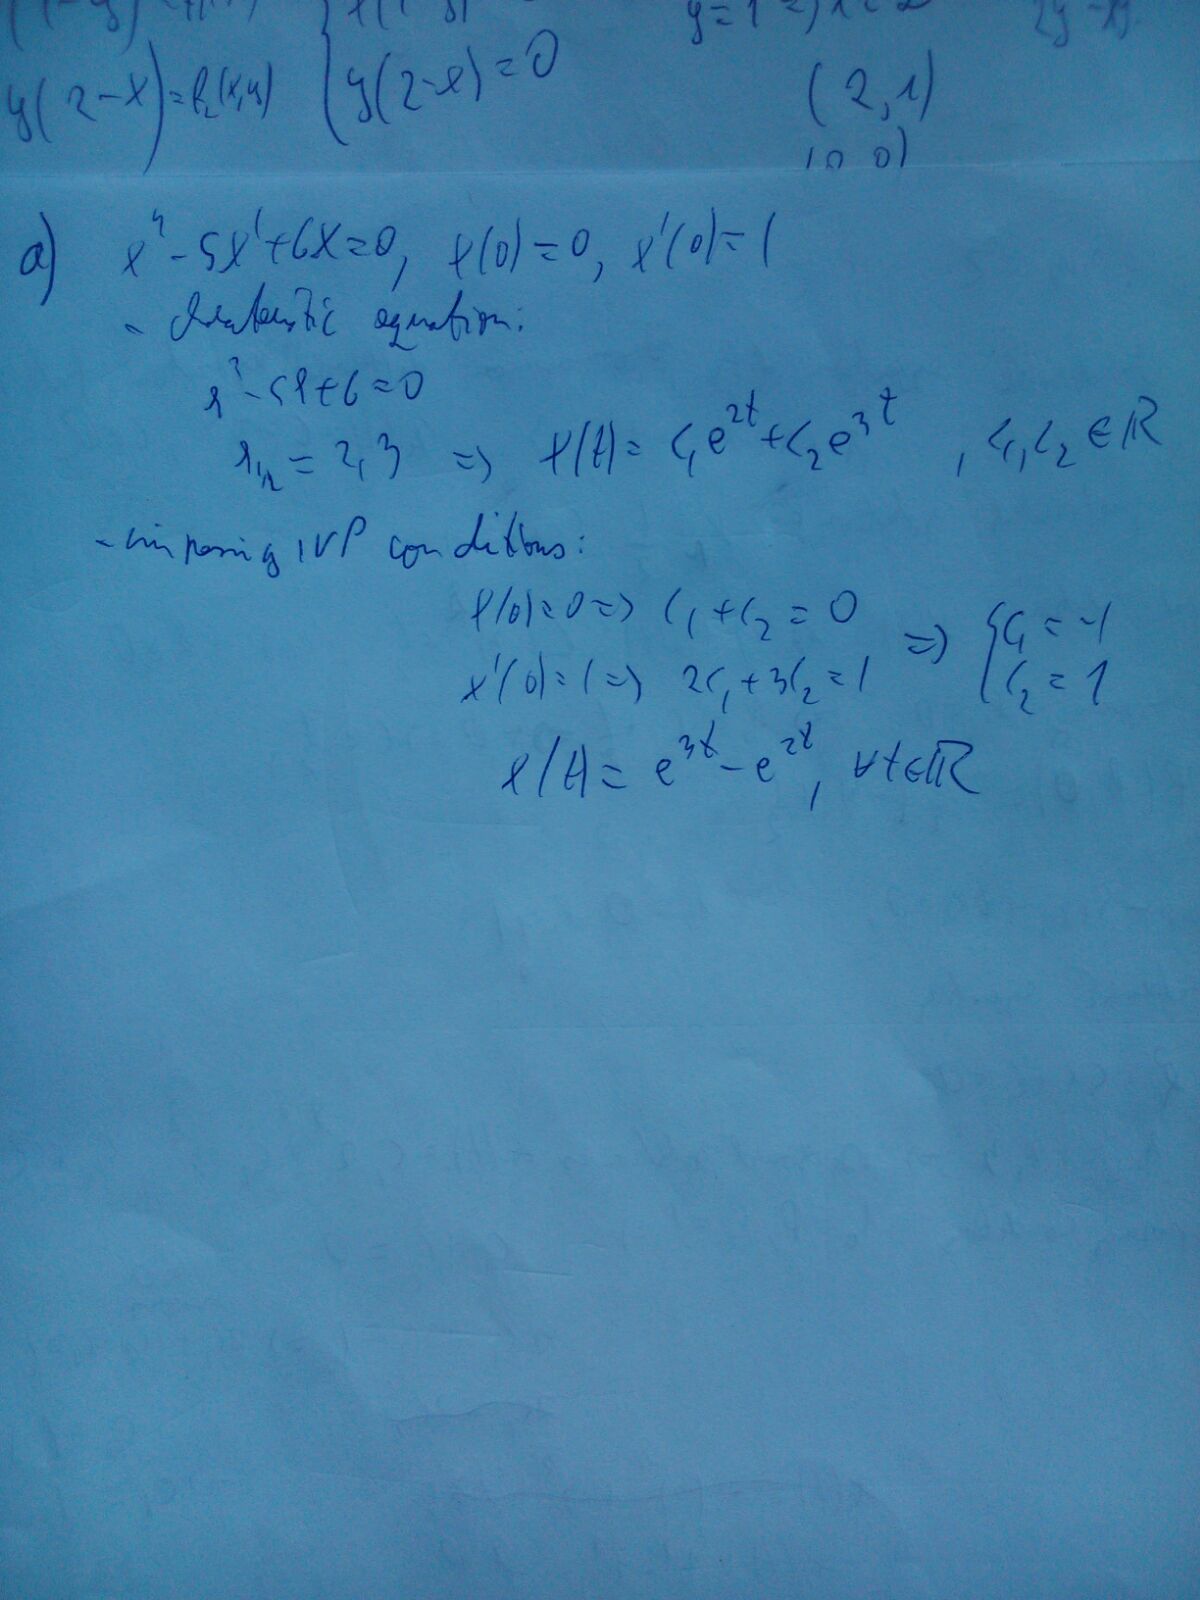 y(2-x)=f₂(x,y) { y(2-x)=0 (2,1)
(0 0)
a) x''-5x'+6x=0, x(0)=0, x'(0)=1
- equation:
r²-5r+6=0
r₁,₂ = 2,3 => x(t)= c₁e^{2t}+c₂e^{3t} , c₁,c₂ ∈ ℝ
- imposing IVP conditions:
x(0)=0 => c₁+c₂=0 => { c₁=-1
x'(0)=1 => 2c₁+3c₂=1 c₂=1
x(t)= e^{3t}-e^{2t}, ∀t∈ℝ